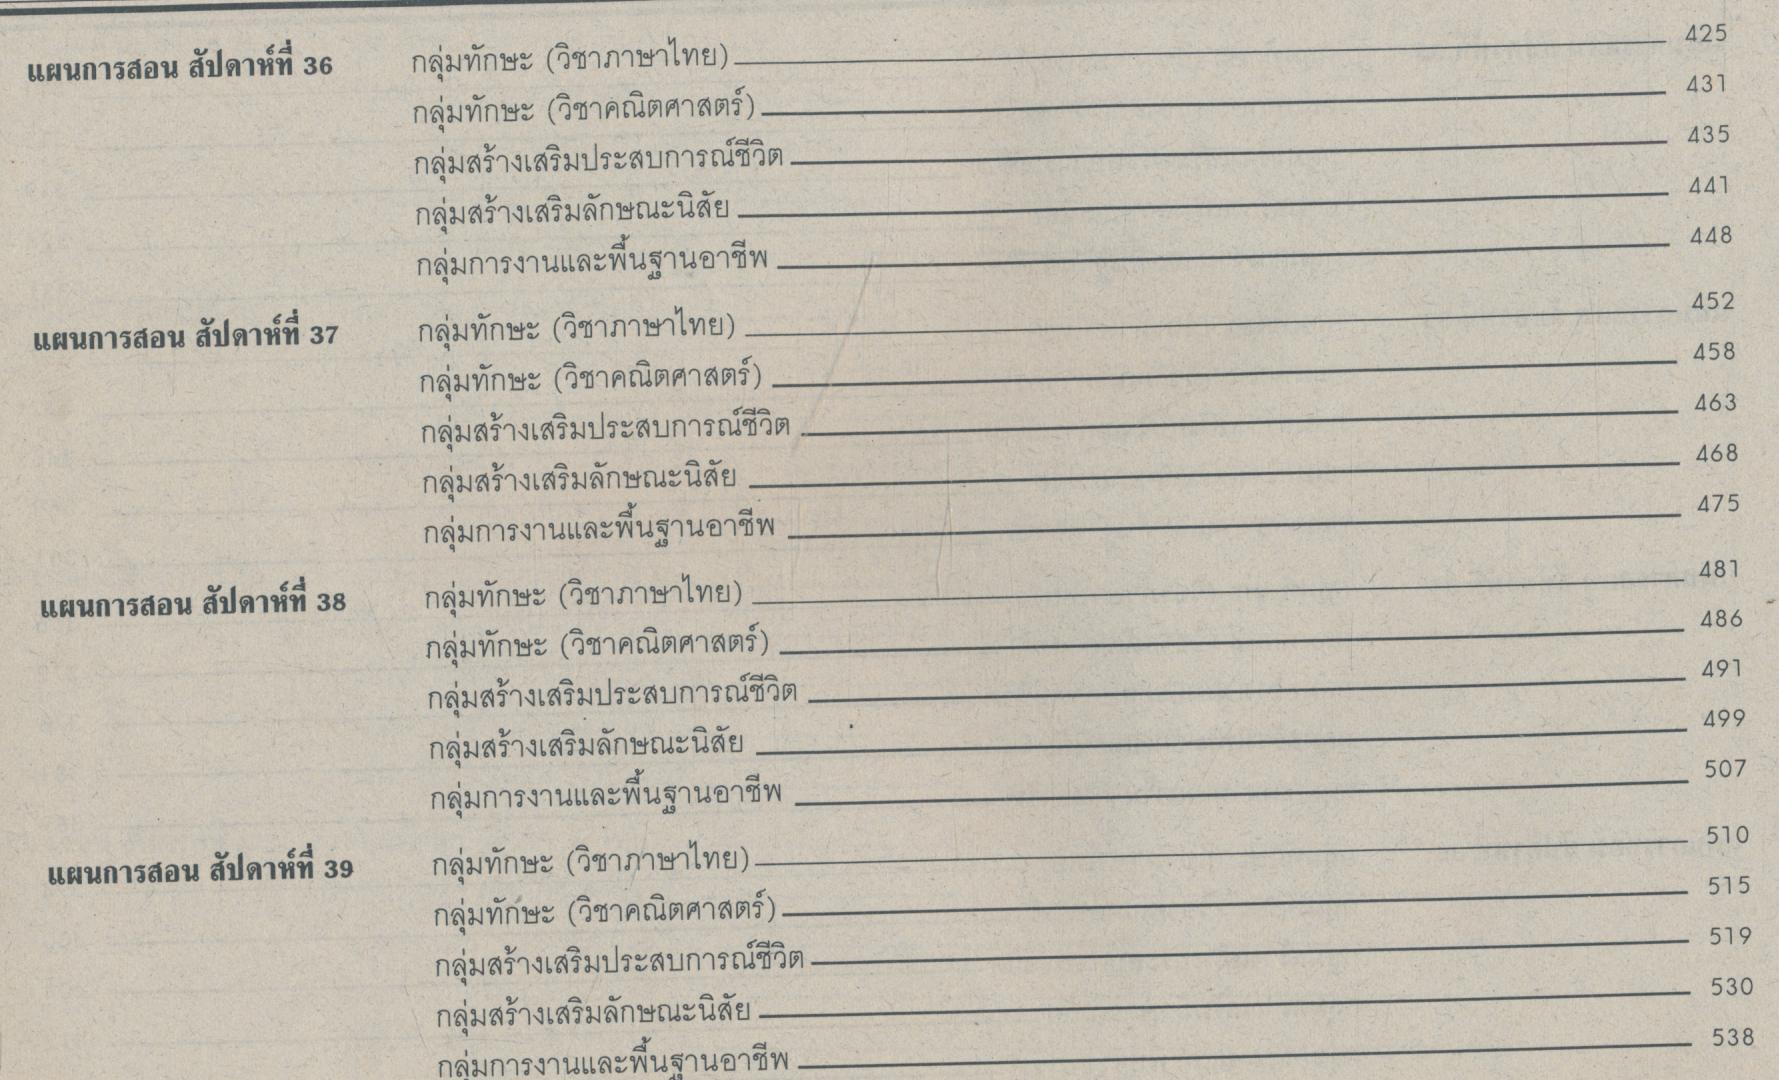 แผนการสอน สัปดาห์ที่ 36 กลุ่มทักษะ (วิชาภาษาไทย) 425
กลุ่มทักษะ (วิชาคณิตศาสตร์) 431
กลุ่มสร้างเสริมประสบการณ์ชีวิต 435
กลุ่มสร้างเสริมลักษณะนิสัย 441
กลุ่มการงานและพื้นฐานอาชีพ 448
แผนการสอน สัปดาห์ที่ 37 กลุ่มทักษะ (วิชาภาษาไทย) 452
กลุ่มทักษะ (วิชาคณิตศาสตร์) 458
กลุ่มสร้างเสริมประสบการณ์ชีวิต 463
กลุ่มสร้างเสริมลักษณะนิสัย 468
กลุ่มการงานและพื้นฐานอาชีพ 475
แผนการสอน สัปดาห์ที่ 38 กลุ่มทักษะ (วิชาภาษาไทย) 481
กลุ่มทักษะ (วิชาคณิตศาสตร์) 486
กลุ่มสร้างเสริมประสบการณ์ชีวิต 491
กลุ่มสร้างเสริมลักษณะนิสัย 499
กลุ่มการงานและพื้นฐานอาชีพ 507
แผนการสอน สัปดาห์ที่ 39 กลุ่มทักษะ (วิชาภาษาไทย) 510
กลุ่มทักษะ (วิชาคณิตศาสตร์) 515
กลุ่มสร้างเสริมประสบการณ์ชีวิต 519
กลุ่มสร้างเสริมลักษณะนิสัย 530
กลุ่มการงานและพื้นฐานอาชีพ 538